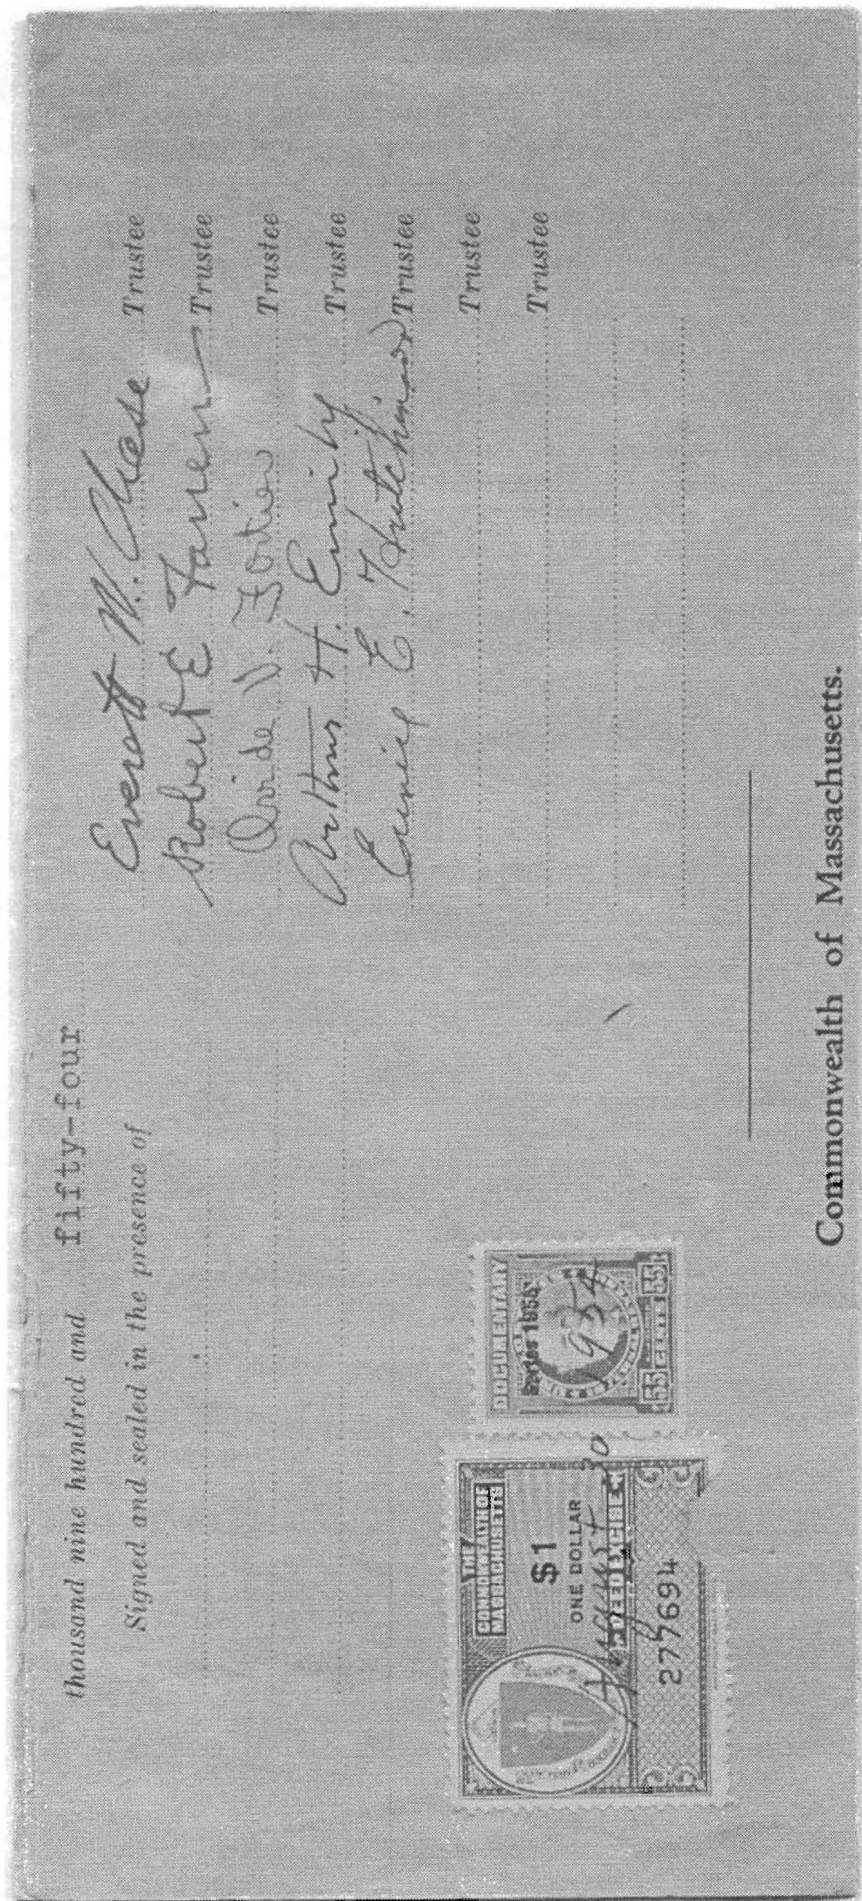 thousand nine hundred and fifty-four
Signed and sealed in the presence of
Everett W. Chase Trustee
Robert E Farren Trustee
Ovide V. Fortier Trustee
Arthur H. Emily Trustee
Eunice E. Hutchinson Trustee
Trustee
Trustee
THE
COMMONWEALTH OF
MASSACHUSETTS
$1
ONE DOLLAR
DEED EXCISE
277694
August 30
DOCUMENTARY
Series 1954
1954
55 CENTS 55
Commonwealth of Massachusetts.